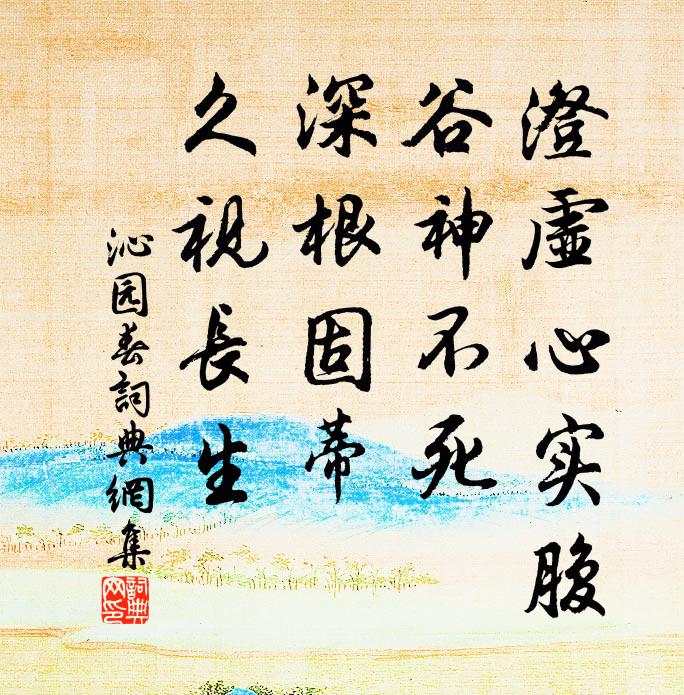 澄虚心实腹
谷神不死
深根固蒂
久視長生
沁园春詞典網集
詞典網印